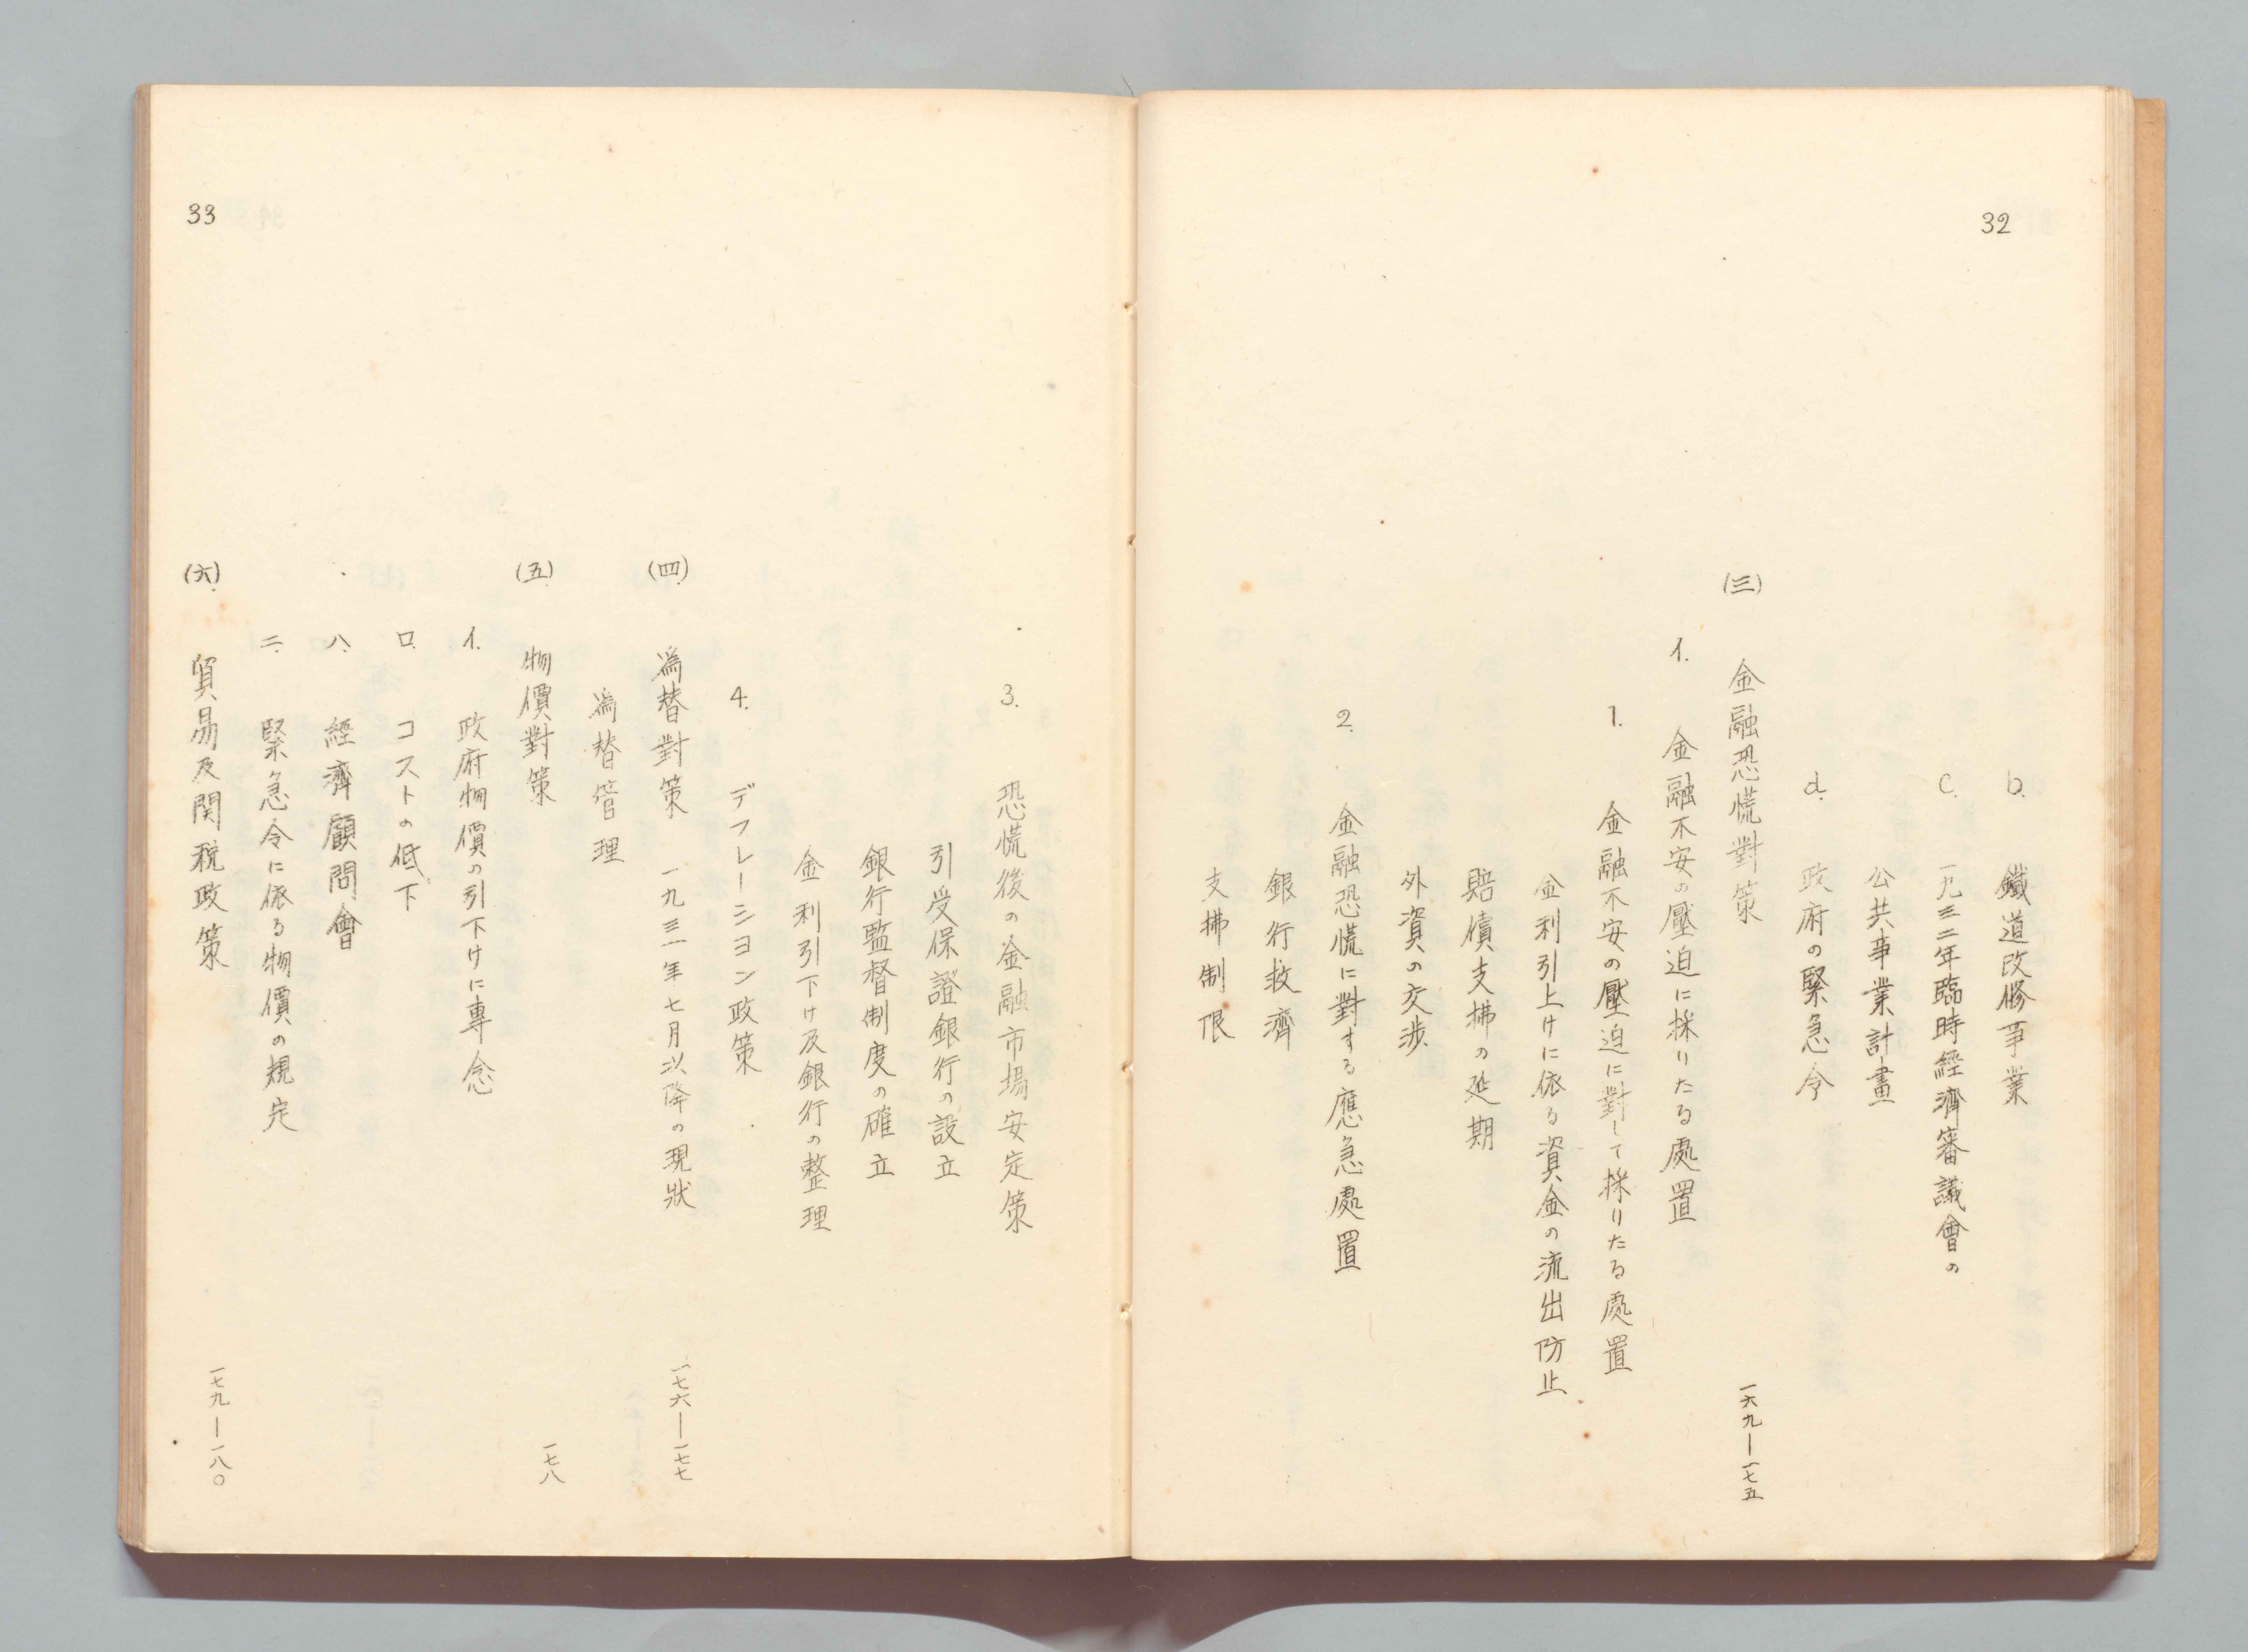 32
b. 鐵道改修事業
c. 一九三二年臨時經濟審議會の
公共事業計畫
d. 政府の緊急令
(三) 金融恐慌對策 一六九―一七五
イ. 金融不安の壓迫に採りたる處置
1. 金融不安の壓迫に對して採りたる處置
金利引上けに依る資金の流出防止
賠償支拂の延期
外資の交渉
2. 金融恐慌に對する應急處置
銀行救濟
支拂制限
3. 恐慌後の金融市場安定策
引受保證銀行の設立
銀行監督制度の確立
金利引下け及銀行の整理
4. デフレーシヨン政策
(四) 為替對策 一九三一年七月以降の現狀 一七六―一七七
為替管理
(五) 物價對策 一七八
イ. 政府物價の引下けに專念
ロ. コストの低下
ハ. 經濟顧問會
ニ. 緊急令に依る物價の規定
(六) 貿易及関稅政策 一七九―一八〇
33